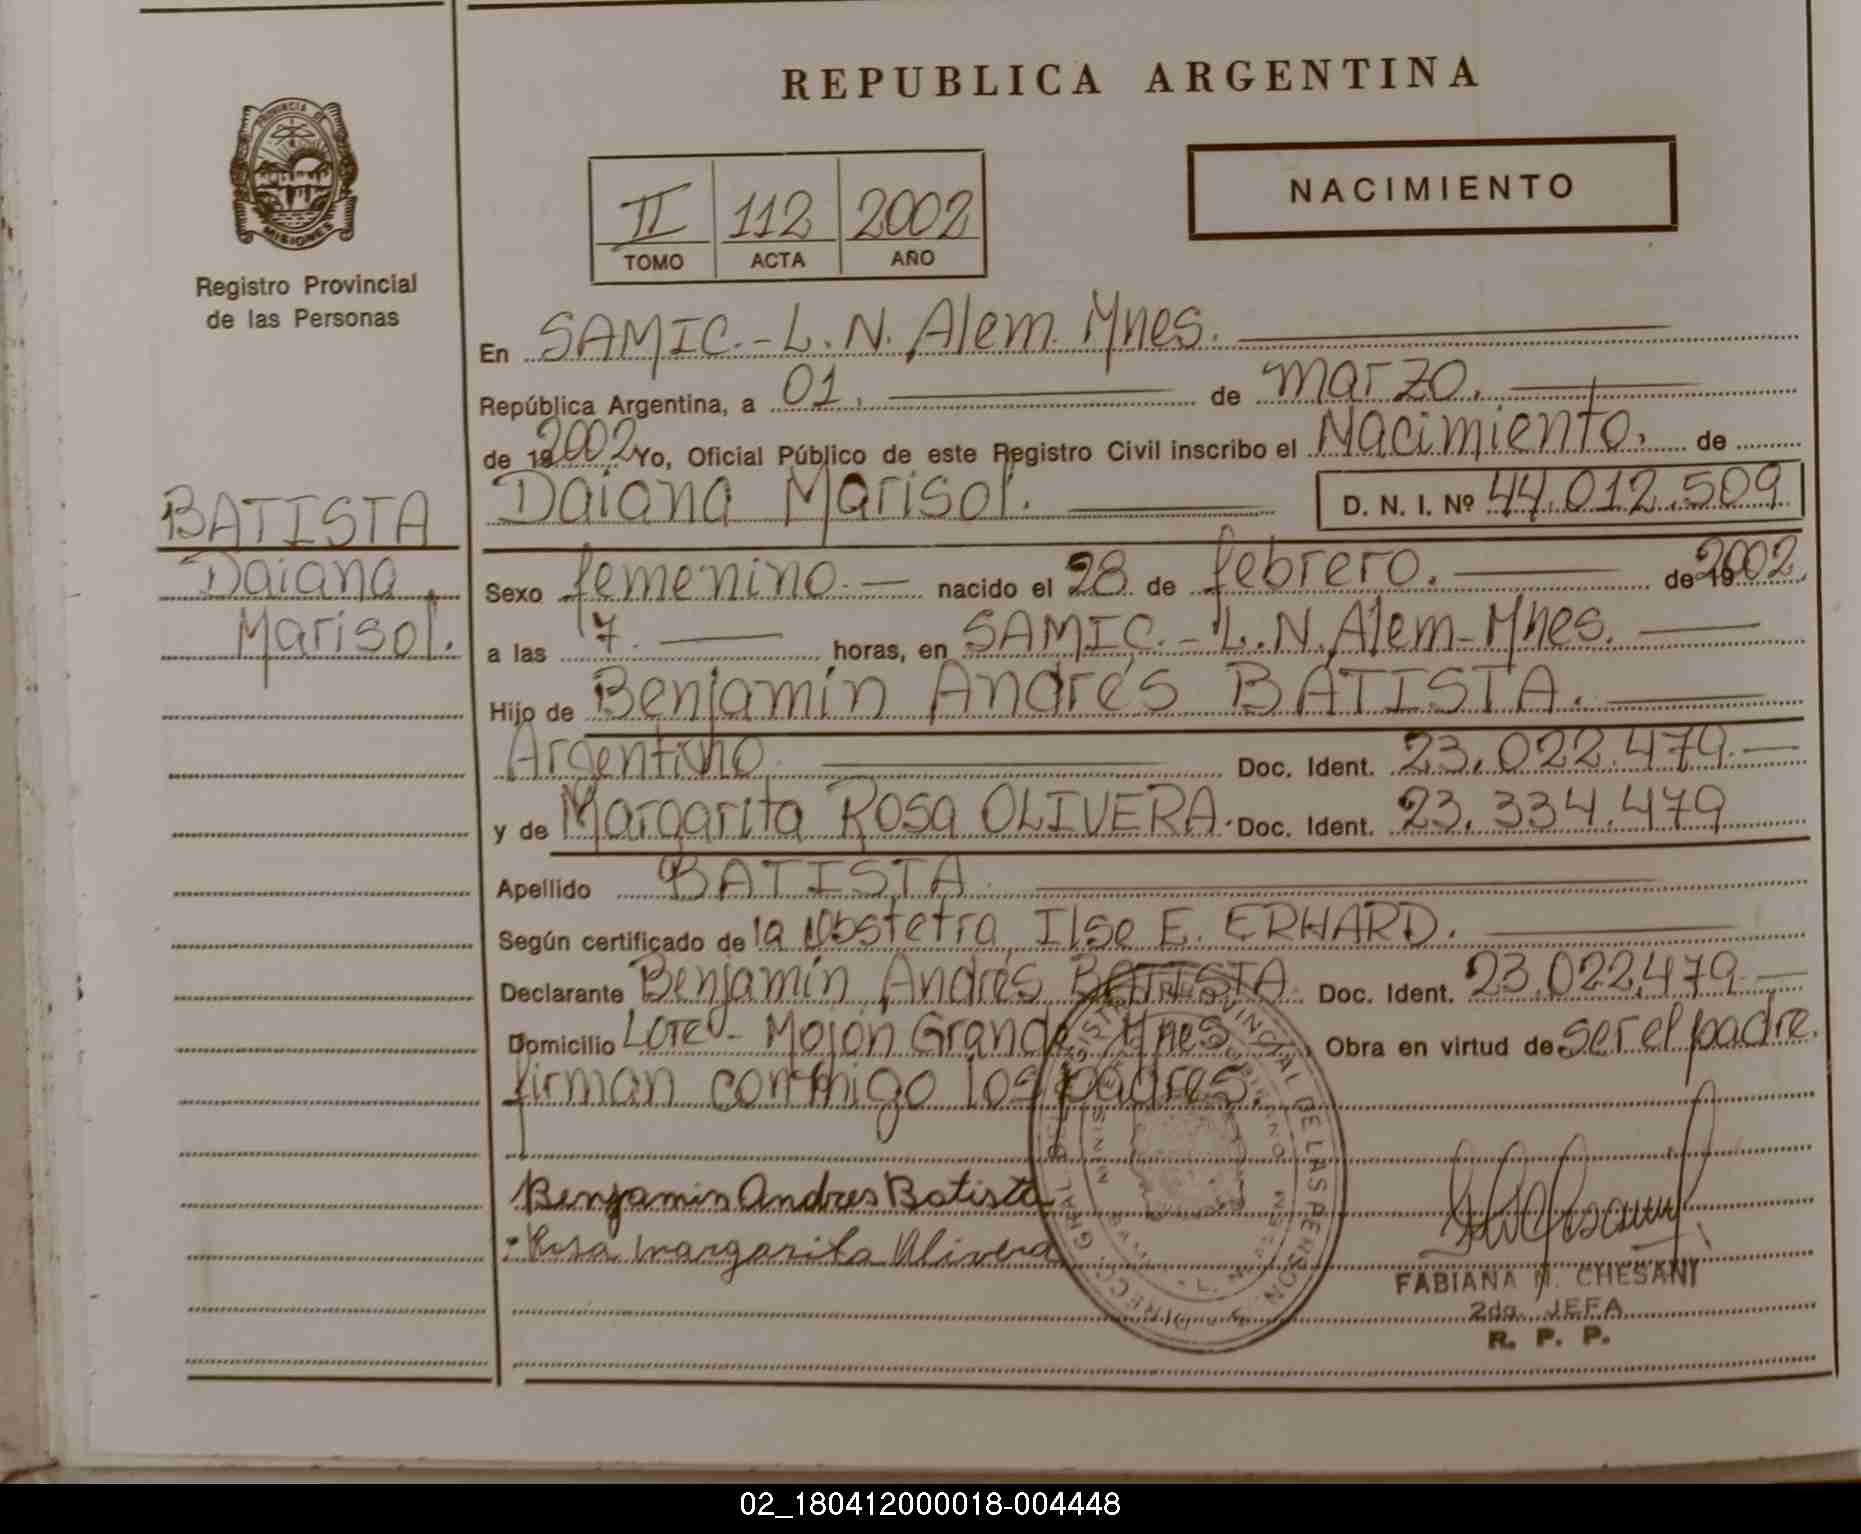 REPUBLICA ARGENTINA
PROVINCIA DE
MISIONES
Registro Provincial
de las Personas
II 112 2002
TOMO ACTA AÑO
NACIMIENTO
En SAMIC.-L.N. Alem. Mnes.
República Argentina, a 01. de marzo.
de 2002 Yo, Oficial Público de este Registro Civil inscribo el Nacimiento. de
BATISTA
Daiana
Marisol.
Daiana Marisol. D. N. I. Nº 44.012.509
Sexo femenino.- nacido el 28 de febrero. de 2002
a las 7. horas, en SAMIC.-L.N. Alem-Mnes.
Hijo de Benjamín Andrés BATISTA.
Argentino Doc. Ident. 23.022.479.-
y de Margarita Rosa OLIVERA. Doc. Ident. 23.334.479
Apellido BATISTA
Según certificado de la Obstetra Ilse E. ERHARD.
Declarante Benjamín Andrés BATISTA. Doc. Ident. 23.022.479-
Domicilio - Mojón Grande, Mnes. Obra en virtud de ser el padre.
firman conmigo los padres.
Benjamin Andres Batista
Rosa margarita Olivera
FABIANA N. CHESANI
2da. JEFA
R. P. P.
02_180412000018-004448